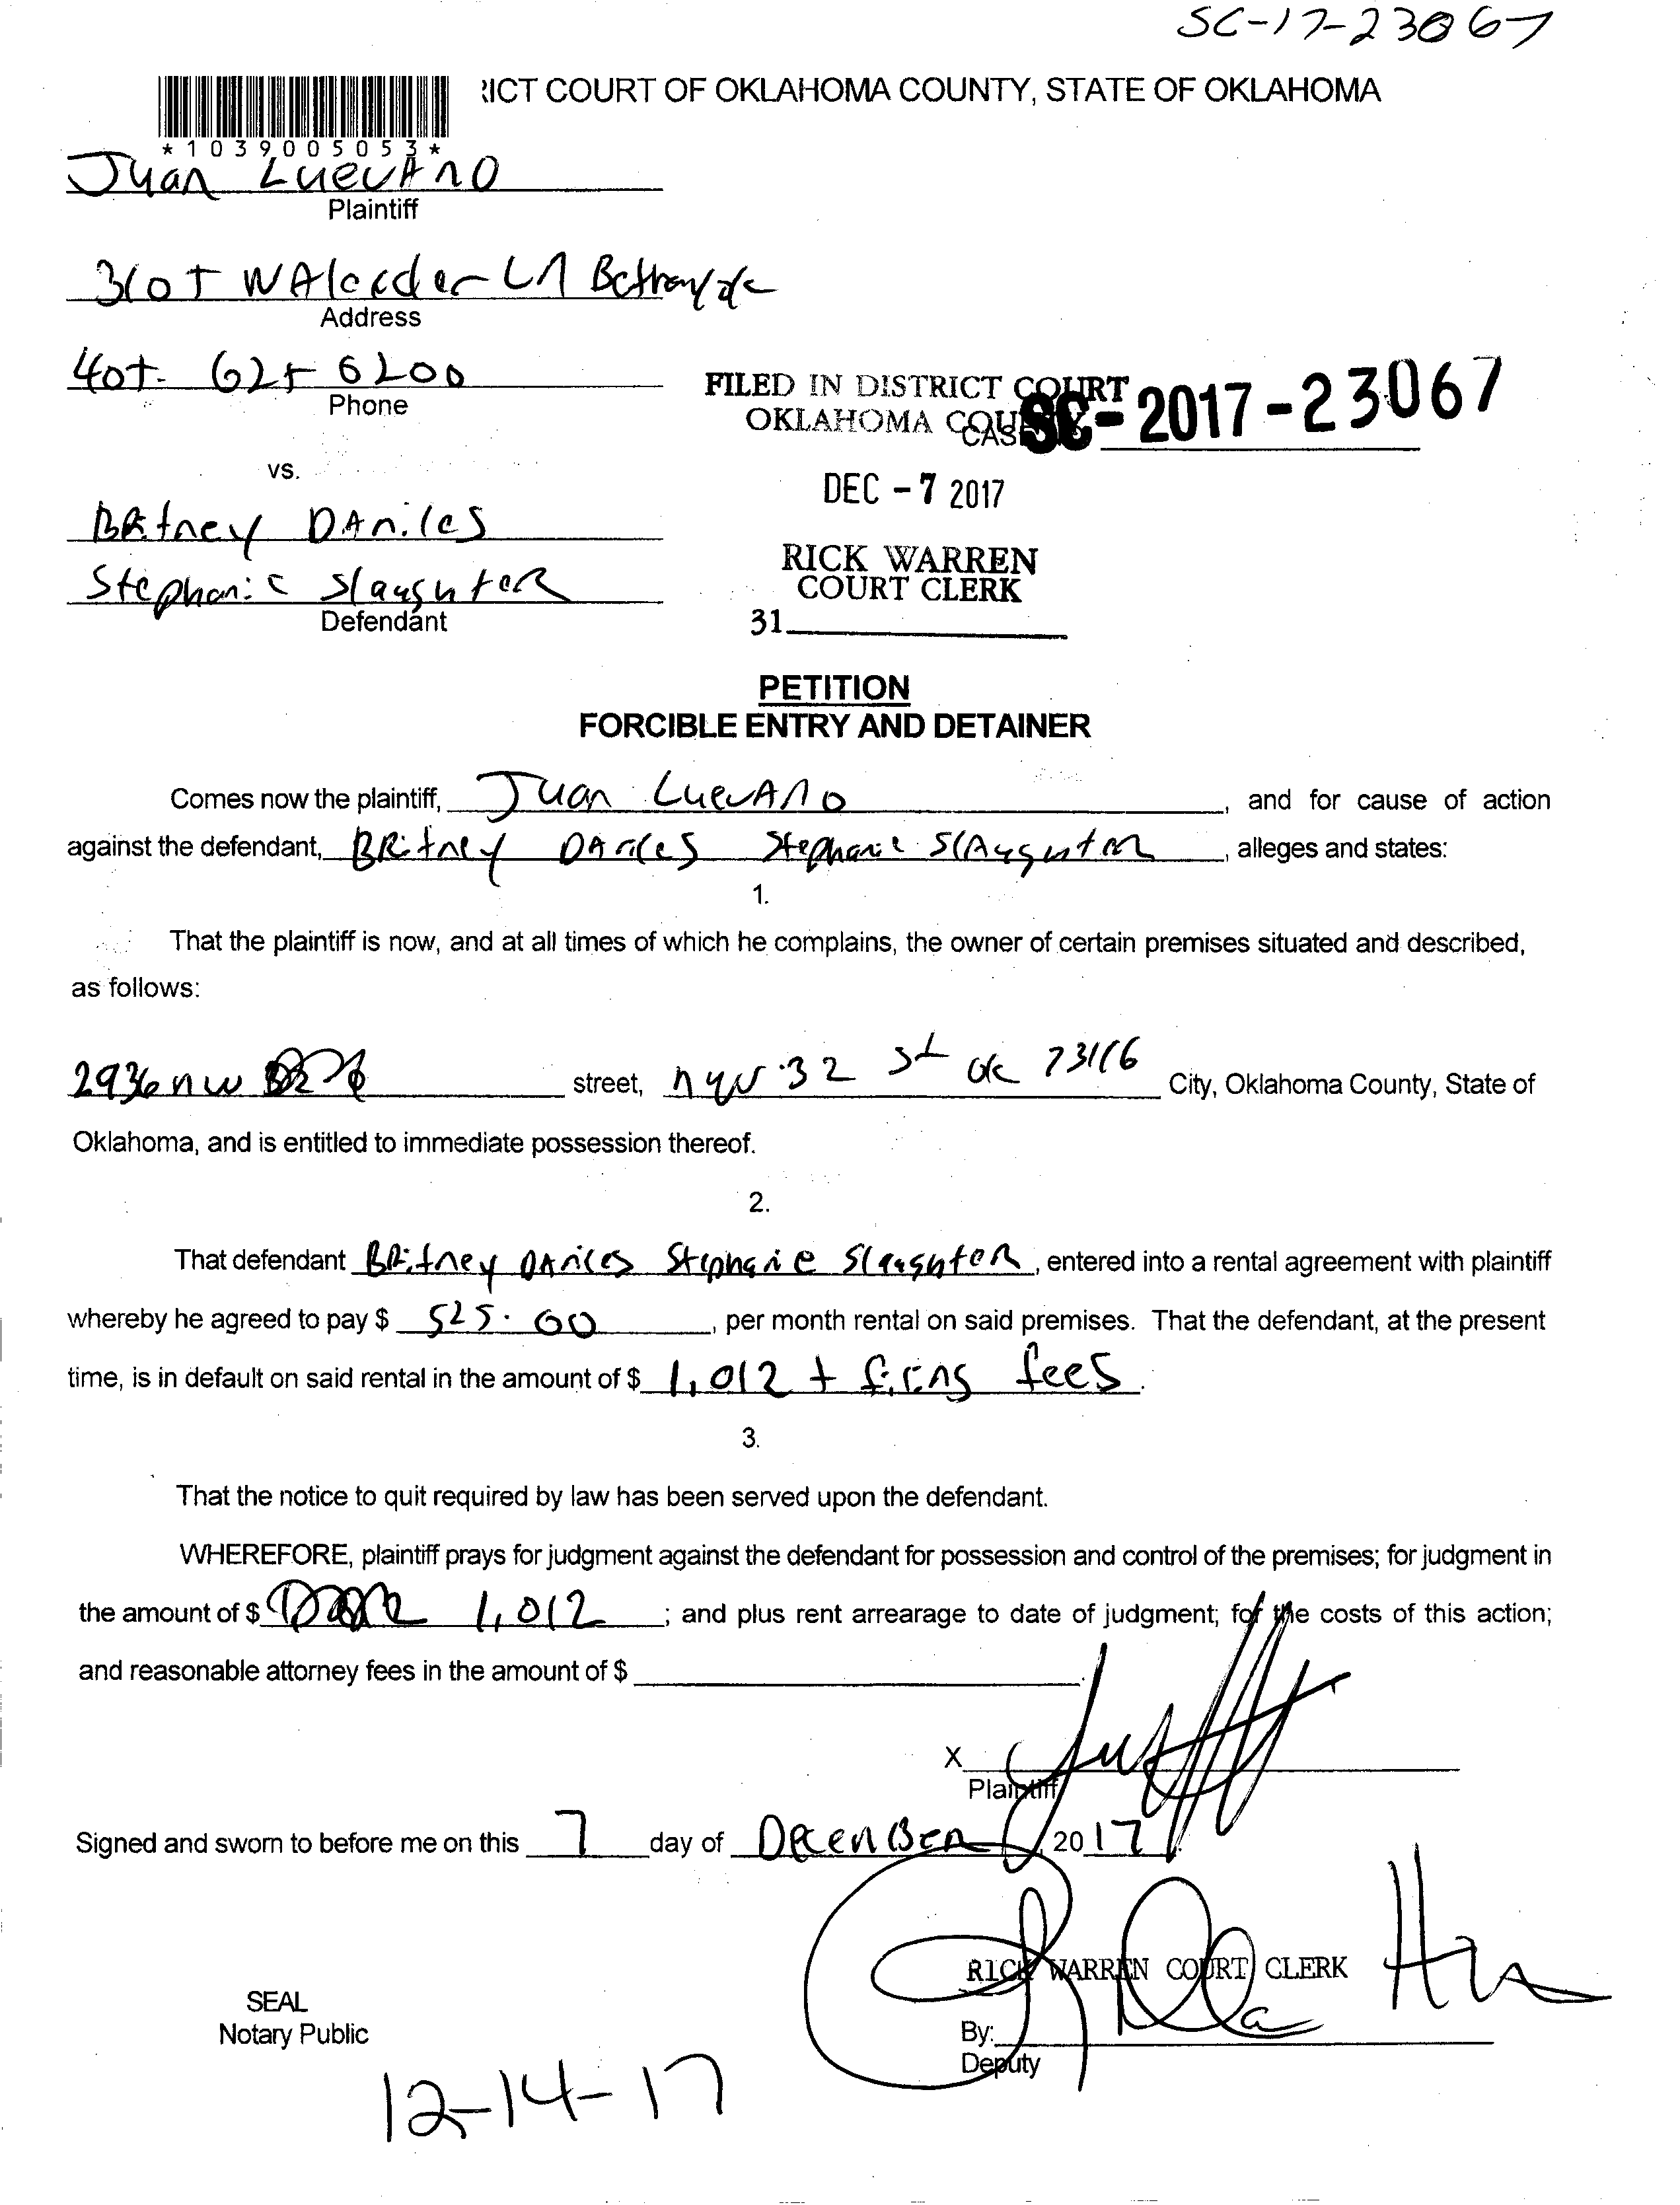 SC-17-23067
ICT COURT OF OKLAHOMA COUNTY, STATE OF OKLAHOMA
*1039005053*
Juan LuevAnO
Plaintiff
Ln
Address
6200
Phone
FILED IN DISTRICT COURT
OKLAHOMA COU
CAS
SC-2017-23067
vs.
DEC - 7 2017
BRitney DAniles
RICK WARREN
COURT CLERK
Stephanie SlaughteR
Defendant
31.
PETITION
FORCIBLE ENTRY AND DETAINER
Comes now the plaintiff, Juan LuevAno, and for cause of action
against the defendant, BRitney DAniles Stephanie SlAughter, alleges and states:
1.
That the plaintiff is now, and at all times of which he complains, the owner of certain premises situated and described,
as follows:
2936 nw street, 32 st ok 73116 City, Oklahoma County, State of
Oklahoma, and is entitled to immediate possession thereof.
2.
That defendant BRitney DAniles Stephanie SlaughteR, entered into a rental agreement with plaintiff
whereby he agreed to pay $ 525.00, per month rental on said premises. That the defendant, at the present
time, is in default on said rental in the amount of $ 1,012 + fees.
3.
That the notice to quit required by law has been served upon the defendant.
WHEREFORE, plaintiff prays for judgment against the defendant for possession and control of the premises; for judgment in
the amount of $ 1,012; and plus rent arrearage to date of judgment; for the costs of this action;
and reasonable attorney fees in the amount of $
X
Plaintiff
Signed and sworn to before me on this 7 day of December, 2017.
RICK WARREN COURT CLERK
SEAL
Notary Public
By:
Deputy
12-14-17